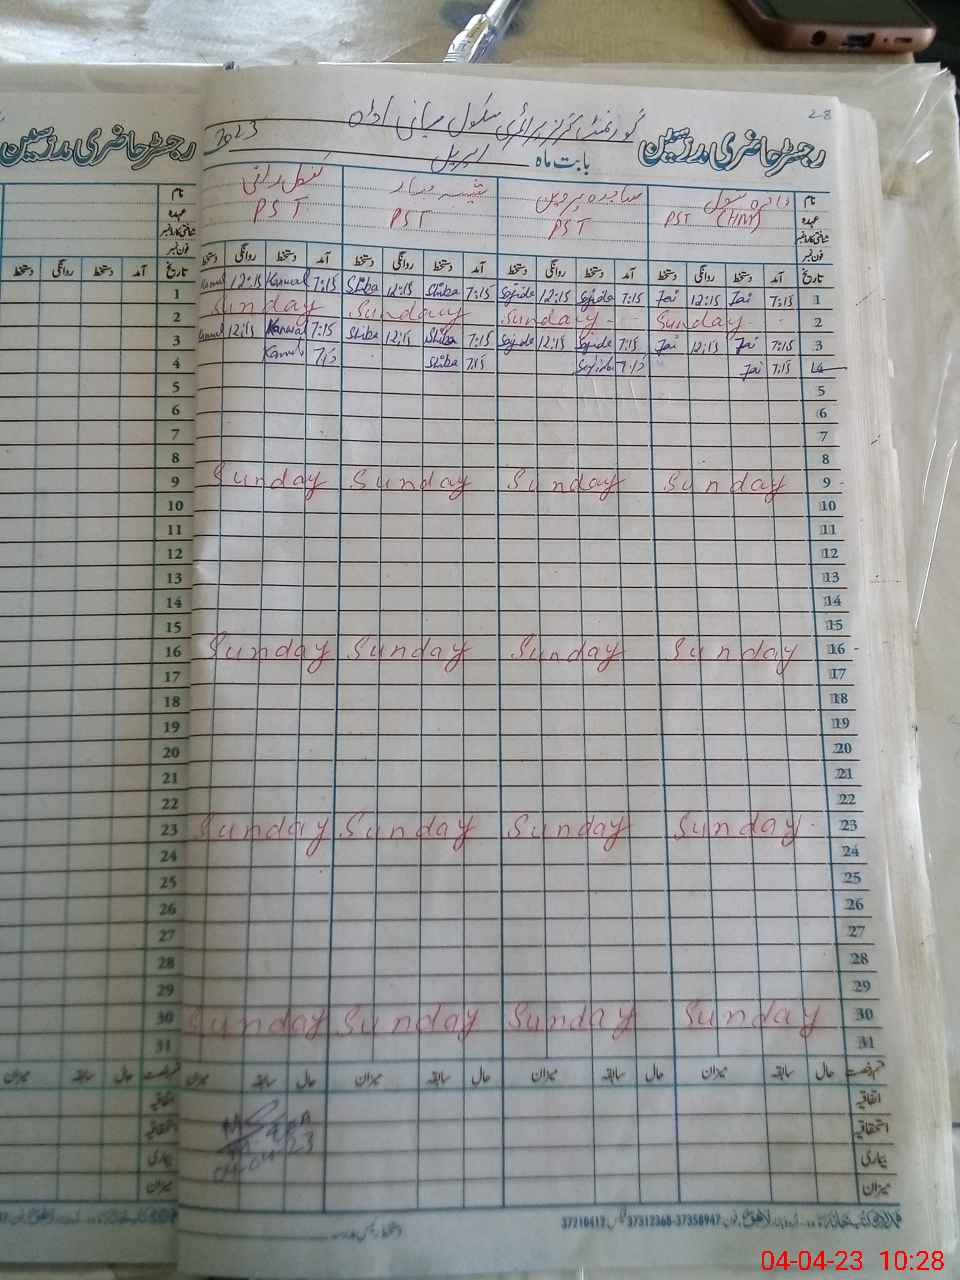 28
گورنمنٹ گرلز پرائمری سکول میانی اڈہ
رجسٹر حاضری مدرسین
بابت ماہ اپریل 2023
رجسٹر حاضری مدرسین
نام ساجدہ پروین
عہدہ PST (HM) PST PST PST
شناختی کارڈ نمبر
فون نمبر
تاریخ آمد دستخط روانگی دستخط آمد دستخط روانگی دستخط آمد دستخط روانگی دستخط آمد دستخط روانگی دستخط
1 7:15 Jai 12:15 Jai 7:15 Sajida 12:15 Sajida 7:15 Shiba 12:15 Shiba 7:15 Kanwal 12:15 Kanwal
2 Sunday Sunday Sunday Sunday
3 7:15 Jai 12:15 Jai 7:15 Sajida 12:15 Sajida 7:15 Shiba 12:15 Shiba 7:15 Kanwal 12:15 Kanwal
4 7:15 Jai 7:15 Sajida 7:15 Shiba 7:15 Kanwal
5
6
7
8
9 Sunday Sunday Sunday Sunday
10
11
12
13
14
15
16 Sunday Sunday Sunday Sunday
17
18
19
20
21
22
23 Sunday Sunday Sunday Sunday
24
25
26
27
28
29
30 Sunday Sunday Sunday Sunday
31
قسم رخصت حال سابقہ میزان حال سابقہ میزان حال سابقہ میزان حال سابقہ میزان
اتفاقیہ
استحقاقیہ
بیماری
میزان
04-04-23
37210412 37312368-37358947
04-04-23 10:28